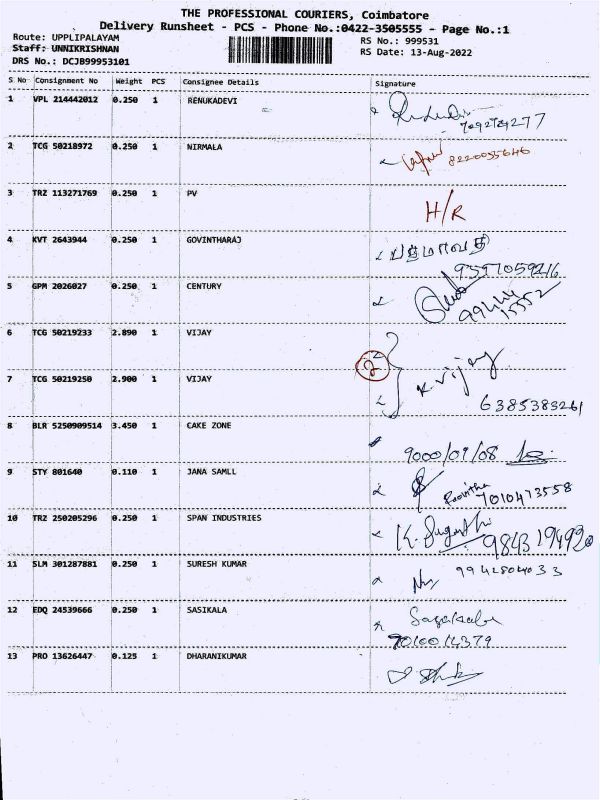 THE PROFESSIONAL COURIERS, Coimbatore
Delivery Runsheet - PCS - Phone No.:0422-3505555 - Page No.:1
Route: UPPLIPALAYAM RS No.: 999531
Staff: UNNIKRISHNAN RS Date: 13-Aug-2022
DRS No.: DCJB99953101
S No Consignment No Weight PCS Consignee Details Signature
1 VPL 214442012 0.250 1 RENUKADEVI
2 TCG 50218972 0.250 1 NIRMALA 8220055646
3 TRZ 113271769 0.250 1 PV H/R
4 KVT 2643944 0.250 1 GOVINTHARAJ பத்மாவதி
9597059216
5 GPM 2026027 0.250 1 CENTURY
6 TCG 50219233 2.890 1 VIJAY
2 K. Vijay
7 TCG 50219250 2.900 1 VIJAY
6385383261
8 BLR 5250909514 3.450 1 CAKE ZONE
9000/01/08
9 STY 801640 0.110 1 JANA SAMLL
7010473558
10 TRZ 250205296 0.250 1 SPAN INDUSTRIES K. Suganthi
9843194920
11 SLM 301287881 0.250 1 SURESH KUMAR 9942804033
12 EDQ 24539666 0.250 1 SASIKALA Sasikala
7010014379
13 PRO 13626447 0.125 1 DHARANIKUMAR